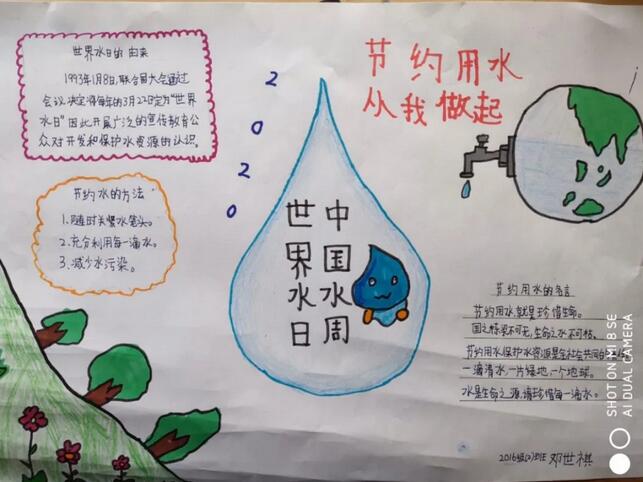 世界水日的由来
1993年1月8日,联合国大会通过
会议决定将每年的3月22日定为"世界
水日"因此开展广泛的宣传教育公
众对开发和保护水资源的认识。
节约水的方法
1.随时关紧水笼头。
2.充分利用每一滴水。
3.减少水污染。
2
0
2
0
节约用水
从我做起
中国水周
世界水日
节约用水的名言
节约用水,就是珍惜生命。
国之栋梁不可无,生命之水不可枯。
节约用水保护水资源是全社会共同的
一滴清水,一片绿地,一个地球。
水是生命之源,请珍惜每一滴水。
2016级(2)班 邓世祺
SHOT ON MI 8 SE
AI DUAL CAMERA